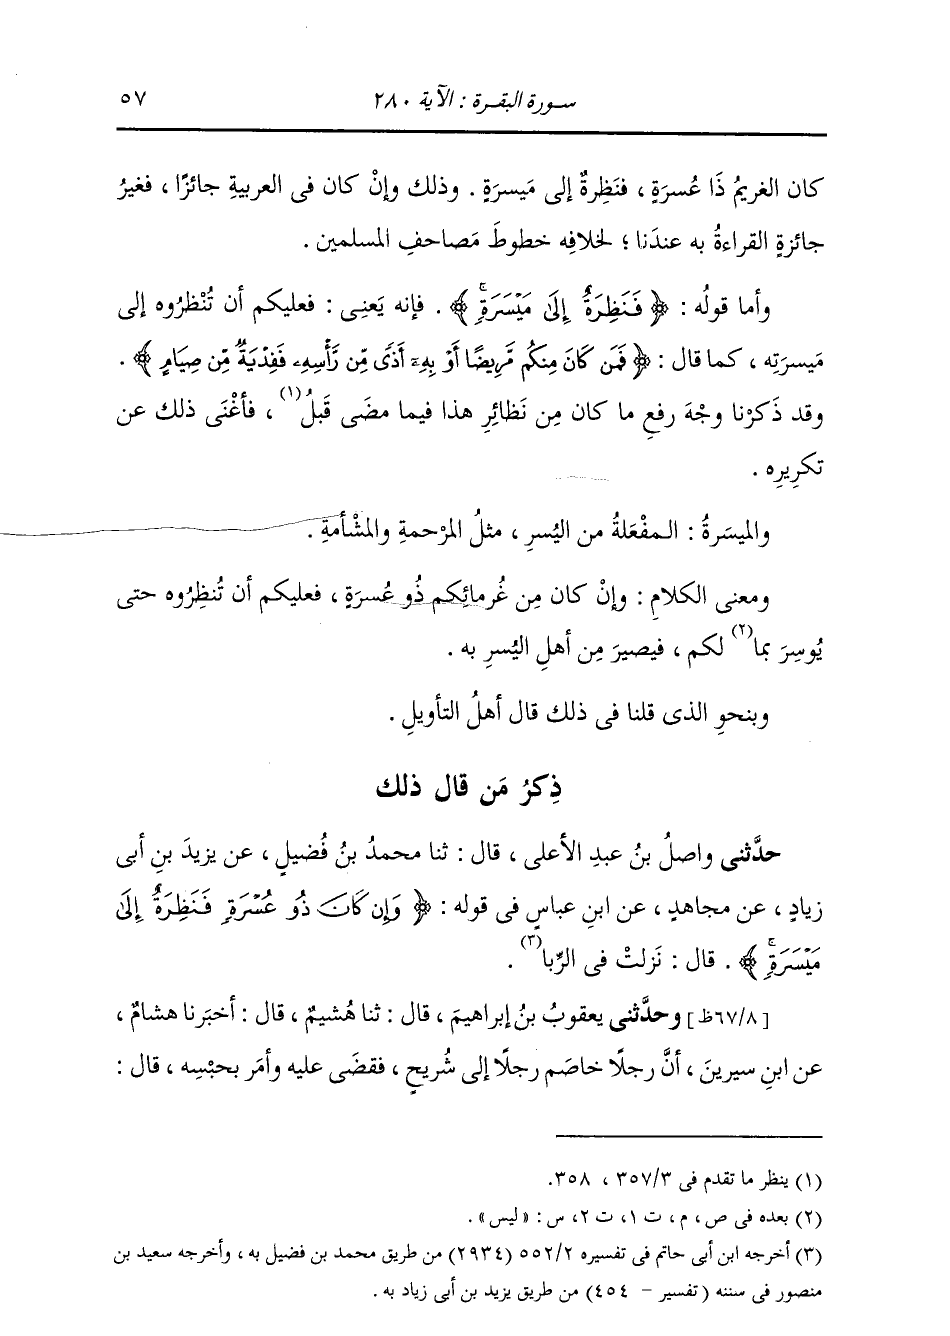 سورة البقرة : الآية ٢٨٠ ٥٧
كان الغريمُ ذَا عُسرَةٍ ، فنَظِرةٌ إلى مَيسرَةٍ . وذلك وإنْ كان فى العربيةِ جائزًا ، فغيرُ
جائزةٍ القراءةُ به عندَنا ؛ لخلافِه خطوطَ مَصاحفِ المسلمين .
وأما قولُه : ﴿ فَنَظِرَةٌ إِلَىٰ مَيْسَرَةٍۚ ﴾ . فإنه يَعنِى : فعليكم أن تُنْظرُوه إلى
مَيسرَتِه ، كما قال : ﴿ فَمَن كَانَ مِنكُم مَّرِيضًا أَوْ بِهِۦٓ أَذًى مِّن رَّأْسِهِۦ فَفِدْيَةٌ مِّن صِيَامٍ ﴾ .
وقد ذَكرْنا وجْهَ رفعِ ما كان مِن نَظائِرِ هذا فيما مضَى قَبلُ(١) ، فأغْنَى ذلك عن
تكرِيرِه .
والميسَرةُ : المفْعَلةُ من اليُسرِ ، مثلُ المرْحمةِ والمشْأمةِ .
ومعنى الكلامِ : وإنْ كان مِن غُرمائِكم ذُو عُسرَةٍ ، فعليكم أن تُنظِرُوه حتى
يُوسِرَ بما(٢) لكم ، فيصيرَ مِن أهلِ اليُسرِ به .
وبنحوِ الذى قلنا فى ذلك قال أهلُ التأويلِ .
ذِكرُ مَن قال ذلك
حدَّثنى واصلُ بنُ عبدِ الأعلى ، قال : ثنا محمدُ بنُ فُضيلٍ ، عن يزيدَ بنِ أبى
زيادٍ ، عن مجاهدٍ ، عن ابنِ عباسٍ فى قوله : ﴿ وَإِن كَانَ ذُو عُسْرَةٍ فَنَظِرَةٌ إِلَىٰ
مَيْسَرَةٍۚ ﴾ . قال : نَزلتْ فى الرِّبا(٣) .
[٦٧/٨ظ] وحدَّثنى يعقوبُ بنُ إبراهيمَ ، قال : ثنا هُشيمٌ ، قال : أخبَرنا هشامٌ ،
عن ابنِ سيرينَ ، أنَّ رجلًا خاصَم رجلًا إلى شُريحٍ ، فقضَى عليه وأمَر بحبْسِه ، قال :
(١) ينظر ما تقدم فى ٣٥٧/٣ ، ٣٥٨.
(٢) بعده فى ص ، م ، ت ١، ت ٢، س : «ليس» .
(٣) أخرجه ابن أبى حاتم فى تفسيره ٥٥٢/٢ (٢٩٣٤) من طريق محمد بن فضيل به ، وأخرجه سعيد بن
منصور فى سننه (تفسير – ٤٥٤) من طريق يزيد بن أبى زياد به .